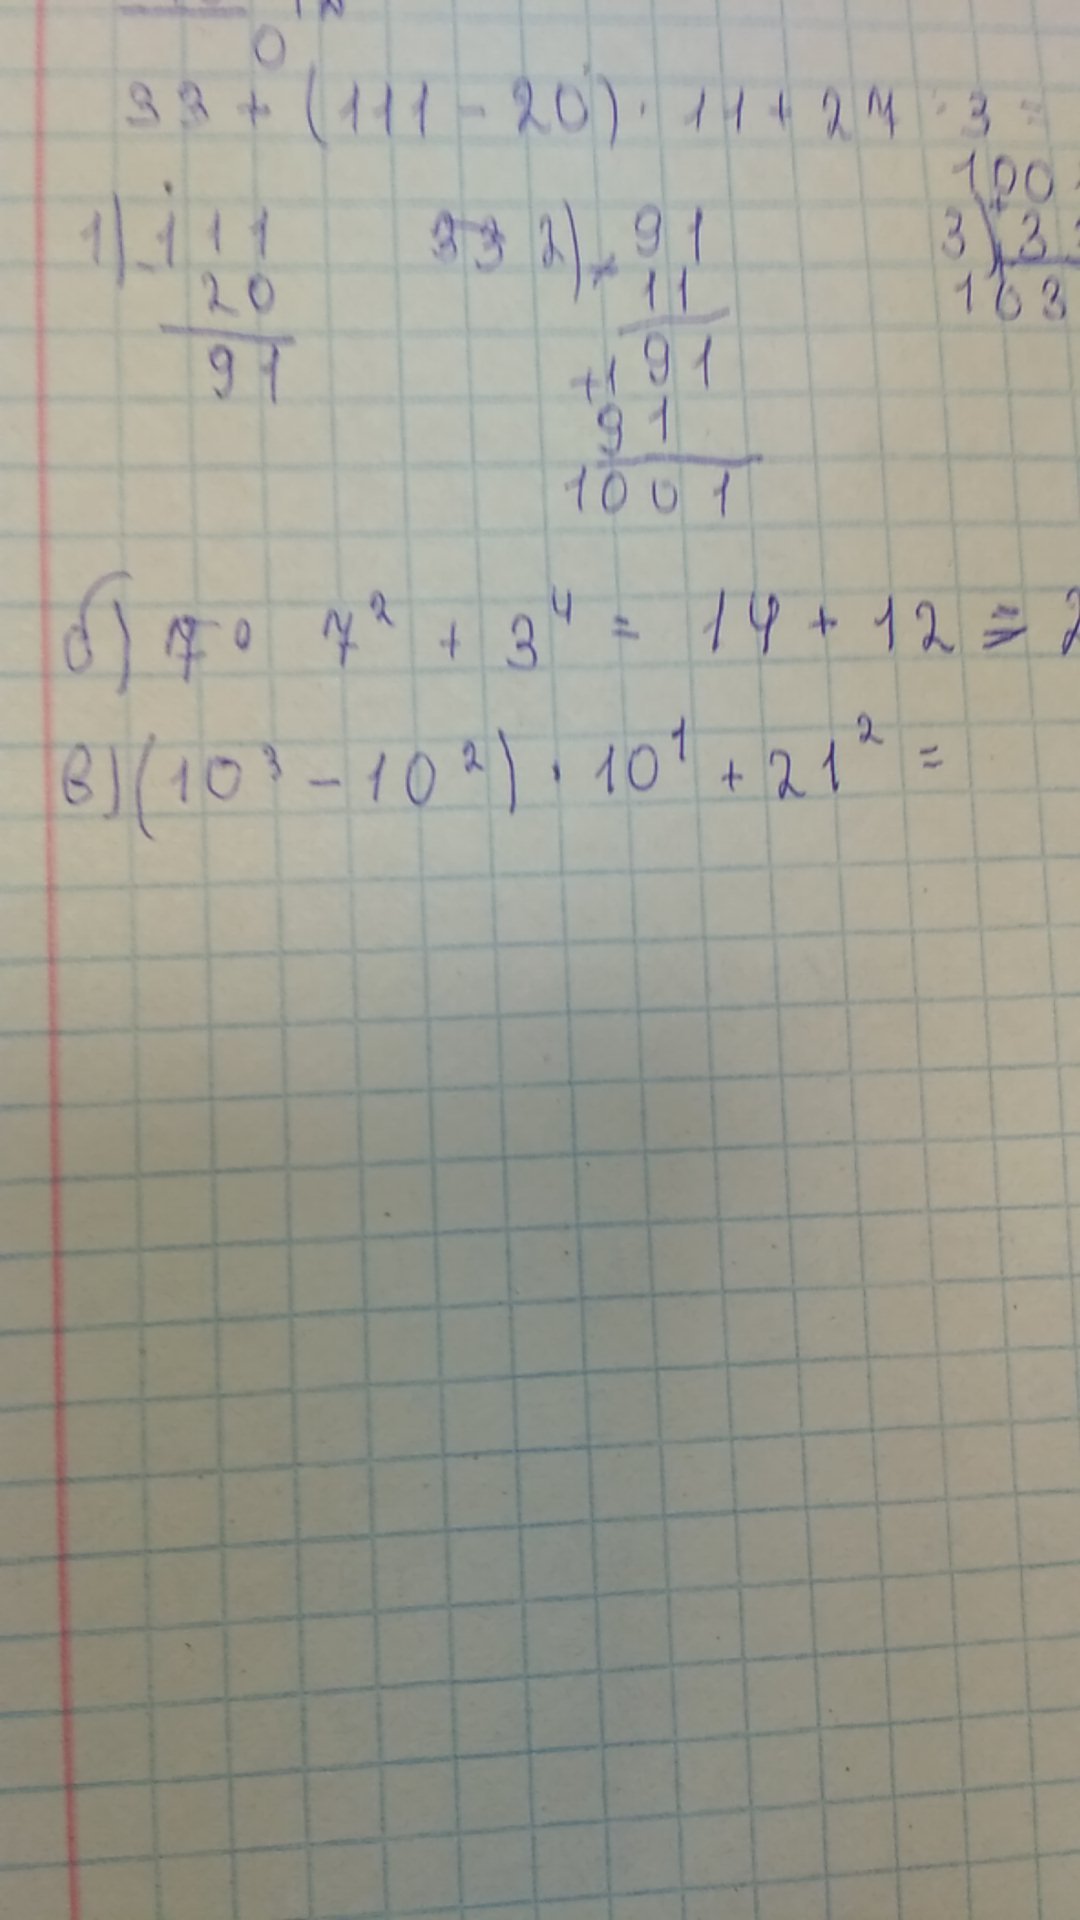 0
33 + (111 - 20) · 11 + 27 : 3 =
1) - 111
20
91
33 2) × 91
11
+1 91
91
1001
100
3) + 33
103
б) 7° 7² + 3⁴ = 14 + 12 = 2
в) (10³ - 10²) · 10¹ + 21² =